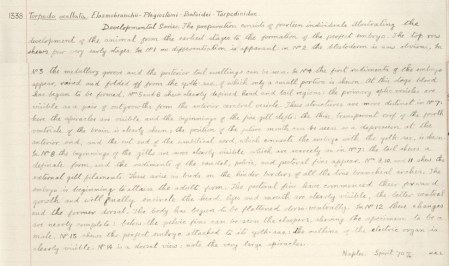 1333. Torpedo ocellata Elasmobranchii - Plagiostomi - Batoidei - Torpedinidae.
Developmental Series. This preparation consists of fourteen individuals illustrating the
development of the animal from the earliest stages to the formation of the perfect embryo. The top row
shows four very early stages. In Nº1 no differentiation is apparent. in Nº2 the blastoderm is now obvious. In
Nº3 the medullary groove and the posterior tail swellings can be seen. In Nº4 the first rudiments of the embryo
appear, raised and folded off from the yolk-sac, of which only a small portion is shown. At this stage blood
has begun to be formed. Nºs 5 and 6 have clearly defined head and tail regions: the primary optic vesicles are
visible as a pair of outgrowths from the anterior cerebral vesicle. These structures are more distinct in Nº7.
here the spiracles are visible and the beginnings of the five gill clefts: the thin, transparent roof of the fourth
ventricle of the brain is clearly shown; the position of the future mouth can be seen as a depression at the
anterior end, and the cut end of the umbilical cord which connects the embryo with the yolk sac, is shown.
In Nº8 the beginnings of the gills are now clearly visible, which were merely in in Nº7; the tail shows a
definite form, and the rudiments of the caudal, pelvic, and pectoral fins appear. Nºs 9, 10 and 11 show the
external gill filaments. These arise as buds on the hinder borders of all the true branchial arches. The
embryo is beginning to attain the adult form. The pectoral fins have commenced their forward
growth and will finally encircle the head. Eyes and mouth are clearly visible, the latter ventral
and the former dorsal. The body has begun to be flattened dorso-ventrally. In Nº12 these changes
are nearly complete: below the pelvic fins can be seen the claspers, showing the specimen to be a
male. Nº13 shows the perfect embryo attached to its yolk-sac: the outline of the electric organ is
clearly visible. Nº14 is a dorsal view: note the very large spiracles.
Naples